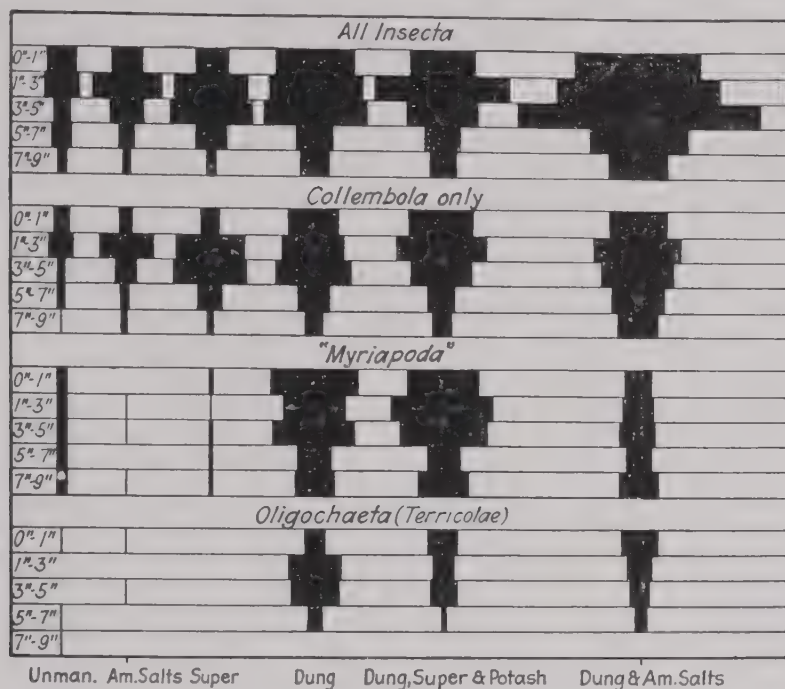 All Insecta
0"-1"
1"-3"
3"-5"
5"-7"
7"-9"
Collembola only
0"-1"
1"-3"
3"-5"
5"-7"
7"-9"
"Myriapoda"
0"-1"
1"-3"
3"-5"
5"-7"
7"-9"
Oligochaeta (Terricolae)
0"-1"
1"-3"
3"-5"
5"-7"
7"-9"
Unman. Am.Salts Super Dung Dung, Super & Potash Dung & Am.Salts